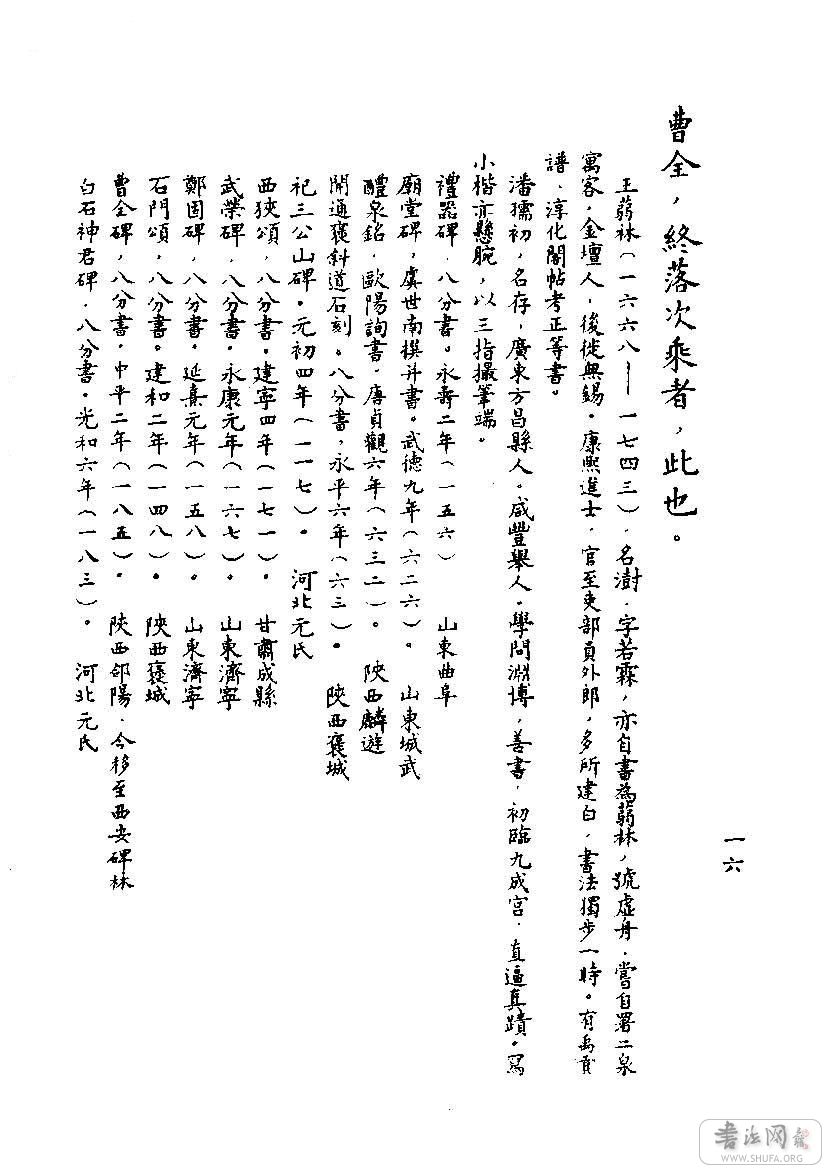 一六
曹全，終落次乘者，此也。
王蒻林（一六六八——一七四三），名澍．字若霖，亦自書為蒻林，號虛舟．嘗自署二泉
寓客，金壇人，後徙無錫．康熙進士．官至吏部員外郎，多所建白，書法獨步一時。有禹貢
譜．淳化閣帖考正等書。
潘孺初，名存，廣東方昌縣人。咸豐舉人．學問淵博，善書．初臨九成宮．直逼真蹟．寫
小楷亦懸腕，以三指撮筆端。
禮器碑．八分書。永壽二年（一五六） 山東曲阜
廟堂碑，虞世南撰并書。武德九年（六二六）。 山東城武
醴泉銘．歐陽詢書．唐貞觀六年（六三二）。 陝西麟遊
開通褒斜道石刻。八分書，永平六年（六三）。 陝西褒城
祀三公山碑．元初四年（一一七）． 河北元氏
西狹頌，八分書．建寧四年（一七一）。 甘肅成縣
武榮碑．八分書．永康元年（一六七）． 山東濟寧
鄭固碑，八分書．延熹元年（一五八）． 山東濟寧
石門頌．八分書。建和二年（一四八）． 陝西褒城
曹全碑，八分書．中平二年（一八五）． 陝西郃陽．今移至西安碑林
白石神君碑．八分書．光和六年（一八三）。 河北元氏
書法网
WWW.SHUFA.ORG